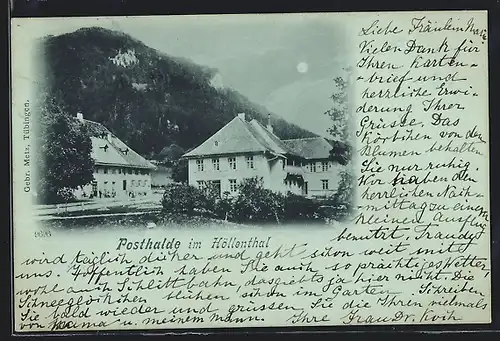 Liebe Fräulein Mari
Vielen Dank für
Ihren Karten-
brief und
herzliche Erwi
derung Ihrer
Grüsse. Das
Körbchen von den
Blumen behalten
Sie nur ruhig
Wir haben den
herrlichen Nach-
mittag zu einem
kleinen Ausflug
benützt, Traudy
wird täglich dicker und geht schon weit mit
uns. Hoffentlich haben Sie auch so prächtiges Wetter
wohl auch Schlittbahn, das giebts ja hier nicht. Die
Schneeglöckchen blühen schon im Garten. Schreiben
Sie bald wieder und grüssen Sie die Ihren vielmals
von Mama u. meinem Mann. Ihre Frau Dr. Koch
Gebr. Metz, Tübingen.
Posthalde im Höllenthal